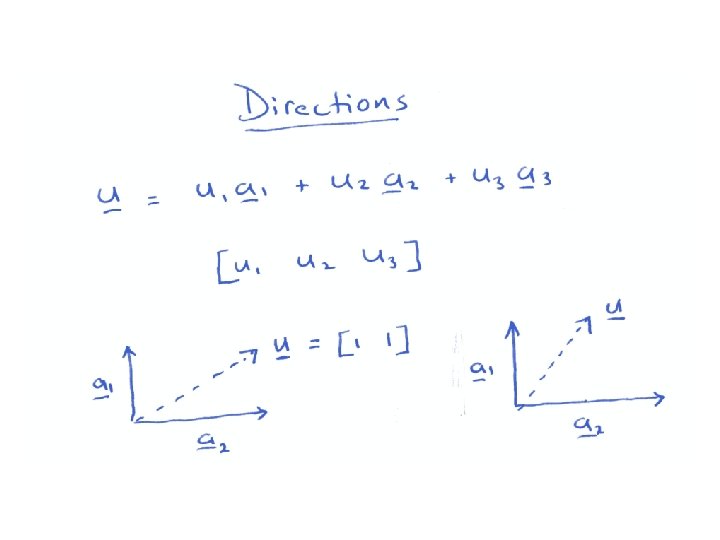 Directions
u = u₁a₁ + u₂a₂ + u₃a₃
[u₁ u₂ u₃]
a₁
a₂
u = [1 1]
a₁
a₂
u